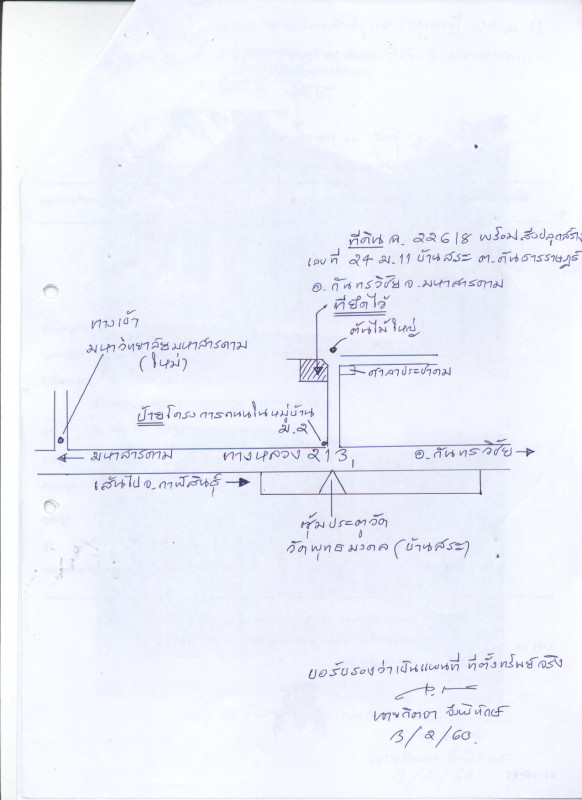 ที่ดิน ฉ. 22618 พร้อมสิ่งปลูกสร้าง
เลขที่ 24 ม.11 บ้านสระ ต.คันธารราษฎร์
อ.กันทรวิชัย จ.มหาสารคาม
ที่ยึดไว้
ต้นไม้ใหญ่
ทางเข้า
มหาวิทยาลัยมหาสารคาม
(ใหม่)
ศาลาประชาคม
ป้ายโครงการถนนในหมู่บ้าน
ม.2
มหาสารคาม
ทางหลวง 213
อ.กันทรวิชัย
เส้นไป จ.กาฬสินธุ์
ซุ้มประตูวัด
วัดพุทธมงคล (บ้านสระ)
ขอรับรองว่าเป็นแผนที่ ที่ตั้งทรัพย์จริง
นาย
3/2/60.